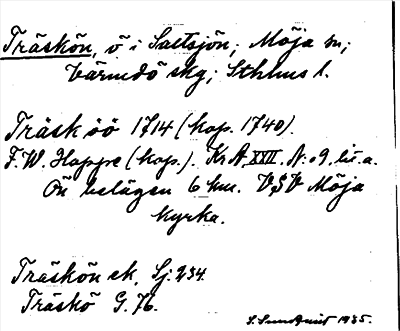 Träskön, ö i Saltsjön; Möja sn;
Värmdö skg; Sthlms l.
Träsk öö 1714 (kop. 1740).
F. W. Hoppe (kop.). Kr A XXII. N:o 9, lit. a.
Ön belägen 6 km. VSV Möja
kyrka.
Träskön ek. Sj. 234.
Träskö G. 76.
S. Sundquist 1935.